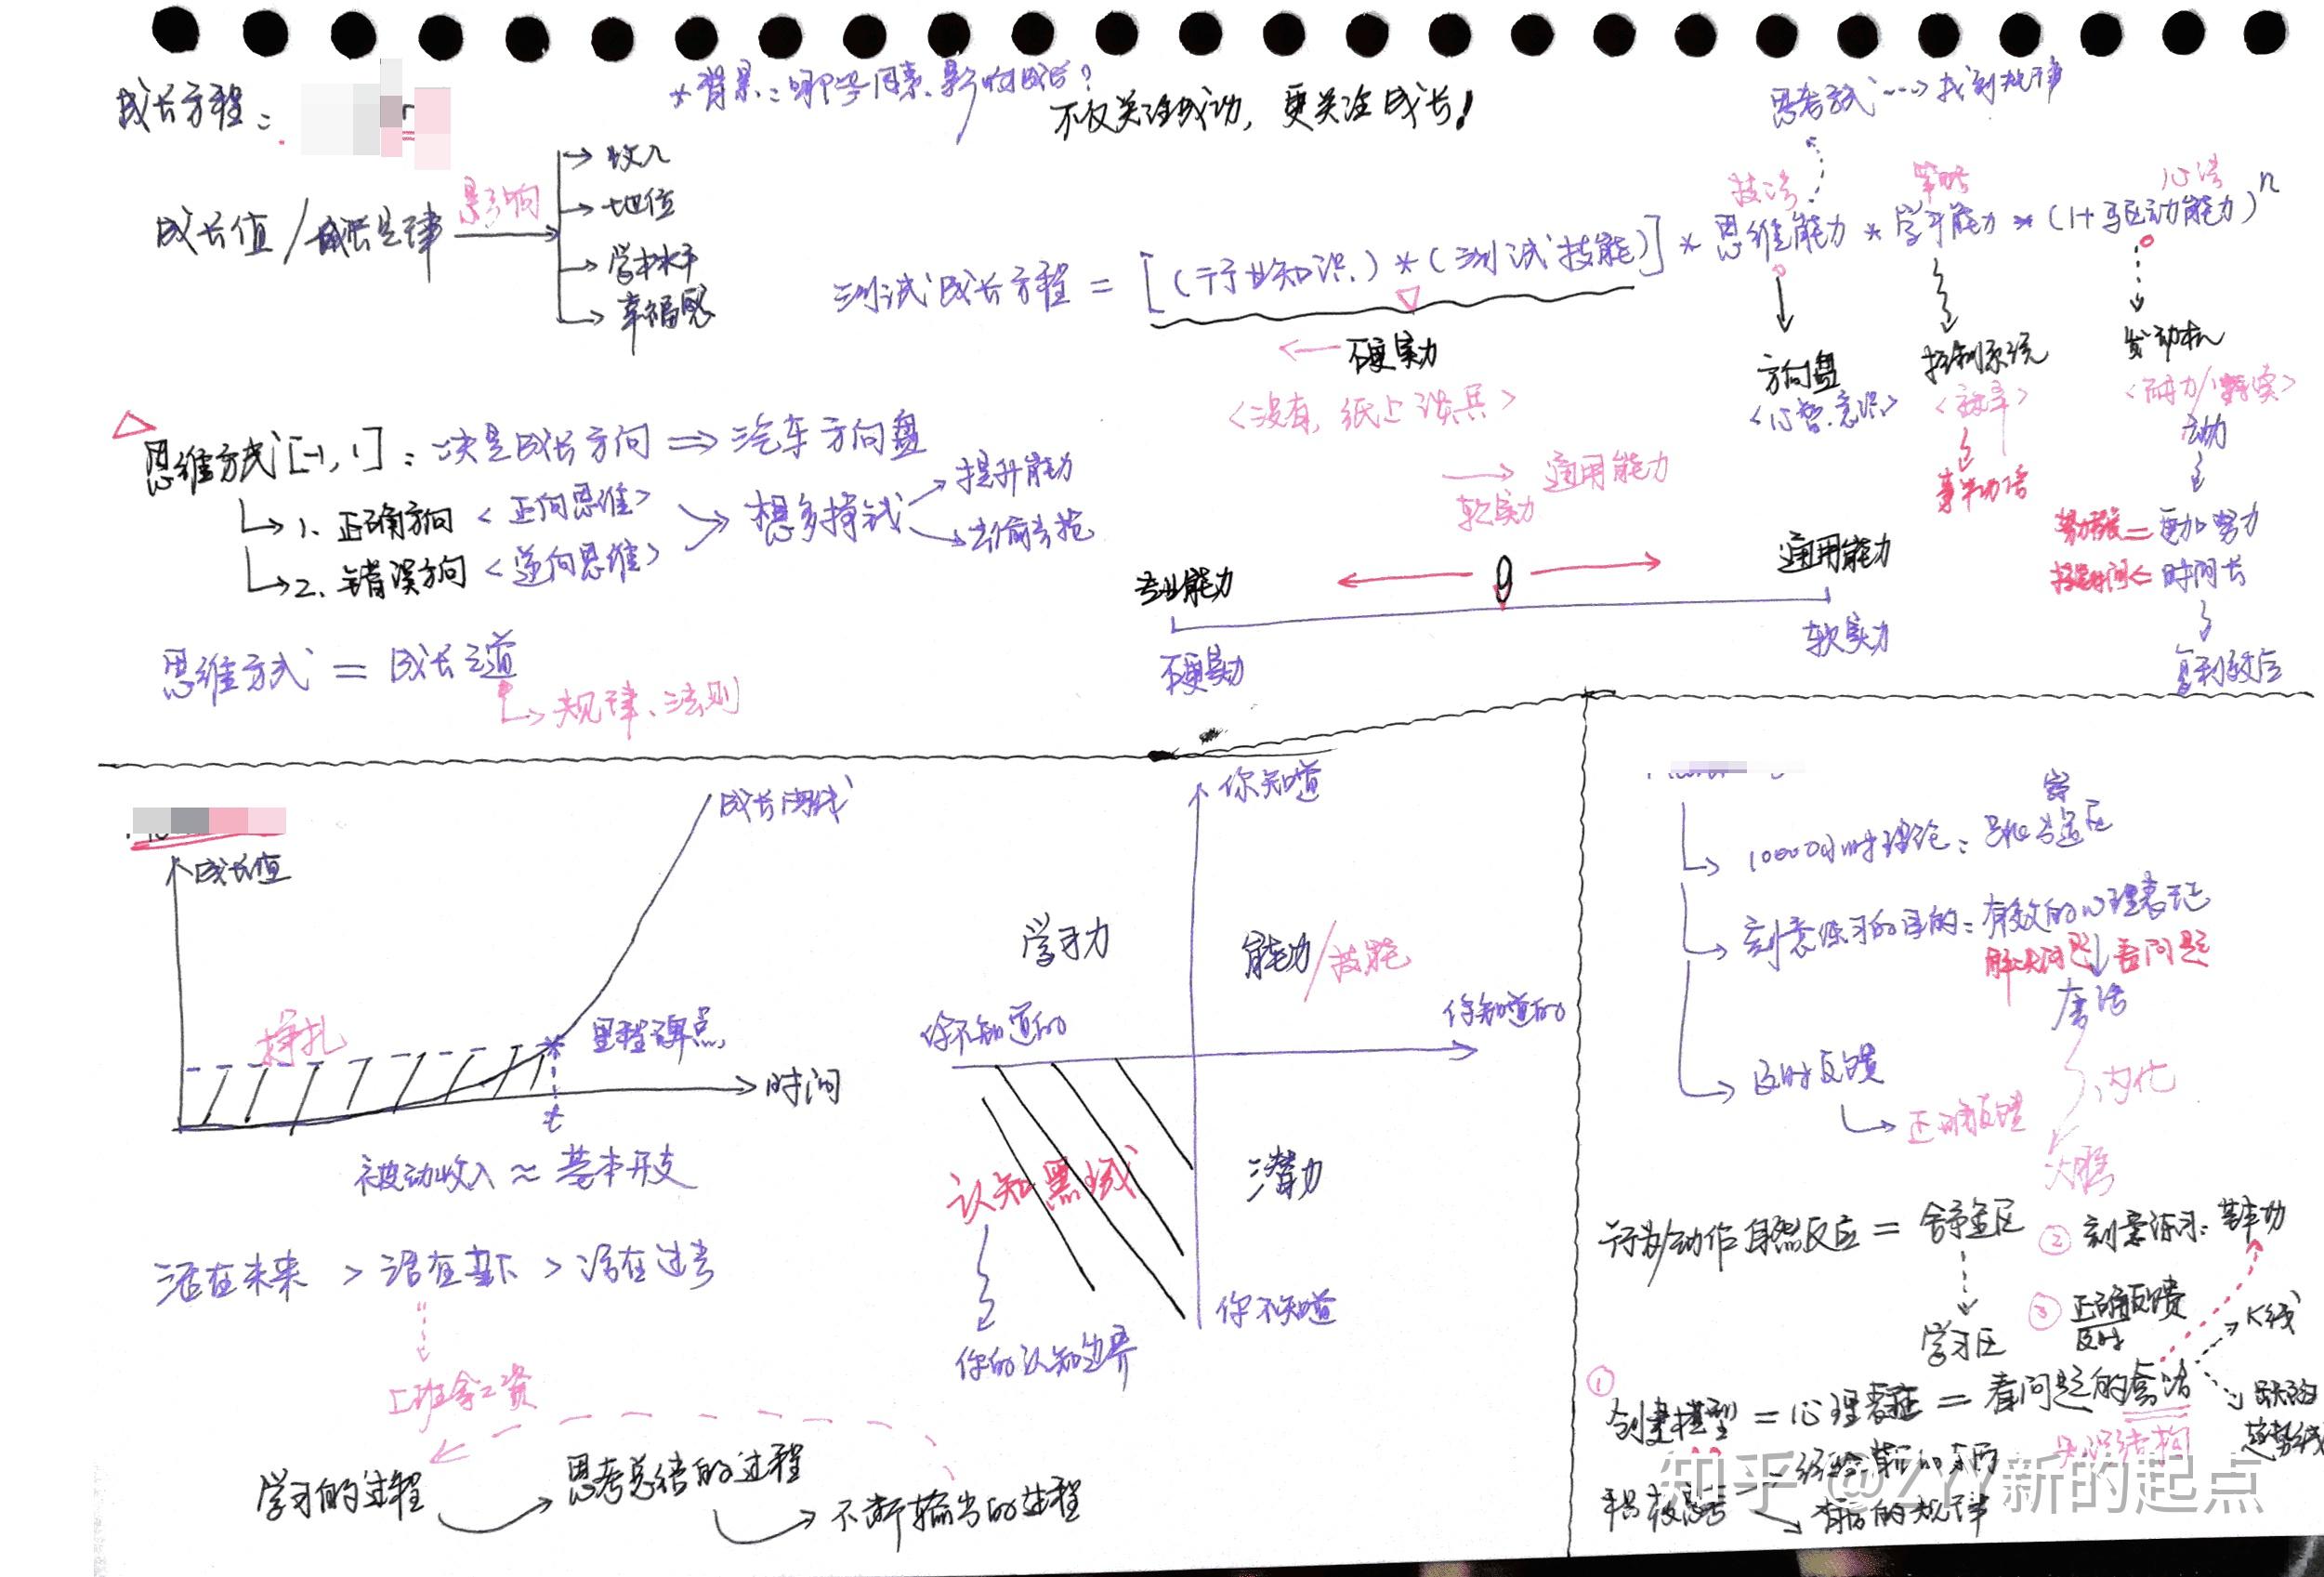 成长方程：
*背景：哪些因素影响成长？
不仅关注成功，更关注成长！
思考方式 ---> 找到规律
成长值 / 成长定律
影响
收入
地位
学术水平
幸福感
技法
策略
心法
测试成长方程 = [（行业知识）*（测试技能）] * 思维能力 * 学习能力 * （1+驱动能力）^n
硬实力
<没有，纸上谈兵>
方向盘
<心智.意识>
控制系统
<效率>
事半功倍
发动机
<耐力/持续>
动力
更加努力
时间长
复利效应
思维方式[-1, 1]：决定成长方向 => 汽车方向盘
1. 正确方向 <正向思维>
2. 错误方向 <逆向思维>
想多挣钱
提升能力
去偷去抢
思维方式 = 成长之道
规律、法则
通用能力
软实力
专业能力
0
通用能力
硬实力
软实力
成长值
成长曲线
挣扎
里程碑点
时间
t
被动收入 ≈ 基本开支
活在未来 > 活在当下 > 活在过去
上班拿工资
学习的过程
思考总结的过程
不断输出的过程
你知道
学习力
能力/技能
你不知道的
你知道的
认知黑域
潜力
你不知道
你的认知边界
10000小时理论：
刻意练习的目的：有效的心理表征
解决问题
看问题
套法
内化
大脑
及时反馈
正确反馈
行为/动作自然反应 = 舒适区
学习区
② 刻意练习：基本功
③ 正确反馈
及时
K线
趋势线
① 创建模型 = 心理表征 = 看问题的套法
知识结构
积极思考
背后的规律
知乎 @ZYY新的起点